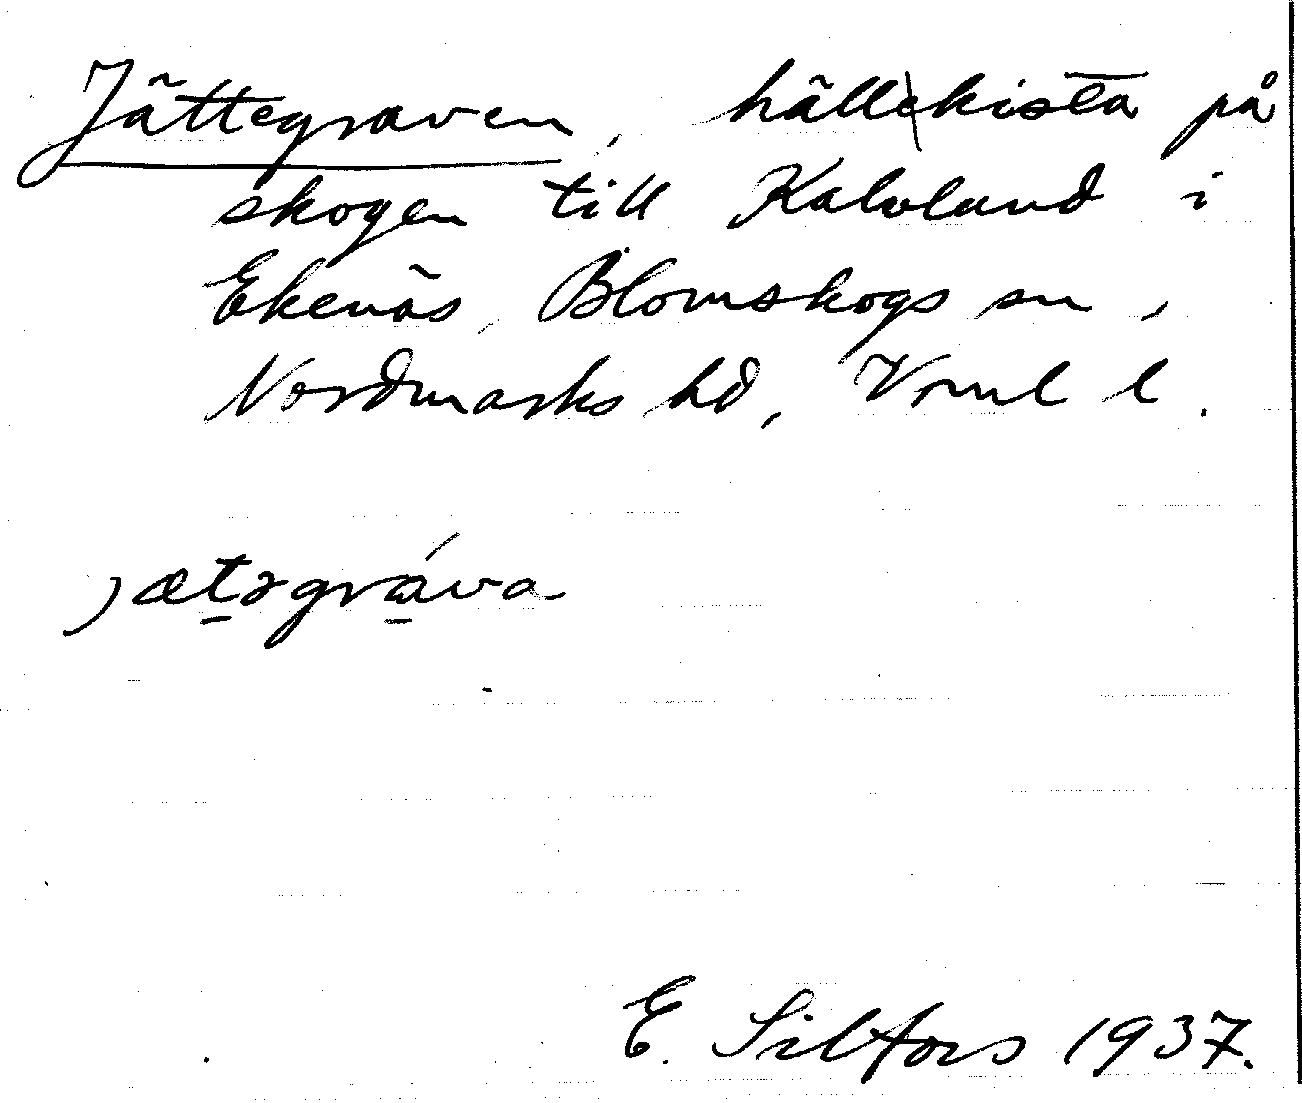 Jättegraven, hällkista på
skogen till Kalvland i
Ekenäs, Blomskogs sn,
Nordmarks hd, Vrml l.
jætəgráva
E. Silfors 1937.